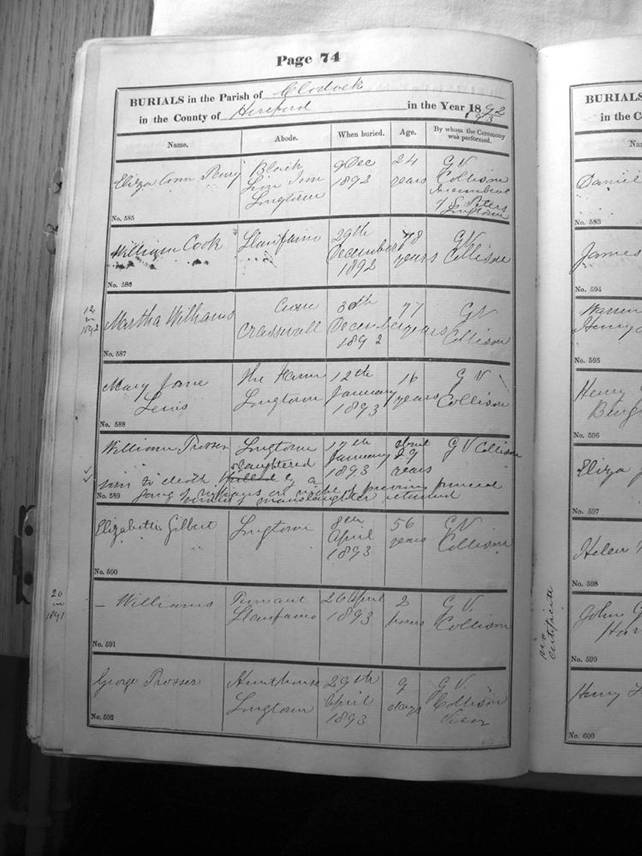 Page 74
BURIALS in the Parish of Clodock
in the County of Hereford in the Year 1892
93
Name. Abode. When buried. Age. By whom the Ceremony was performed.
Eliza Ann Parry Black Lion Inn Longtown 9 Dec 1892 24 years G V Collison
No. 585
William Cook Llanfaino 29th December 1892 78 years G V Collison
No. 586
12 in 1892
Martha Williams Craswall 30th December 1892 77 years G V Collison
No. 587
Mary Jane Lewis The Farm Longtown 12th January 1893 16 years G V Collison
No. 588
William Prosser Longtown 17th January 1893 about 29 years G V Collison
slaughtered
son to death by a
No. 589 gang of ruffians on night preceding funeral
manslaughter returned
Elizabeth Gilbert Longtown 8th April 1893 56 years G V Collison
No. 590
20 in 1891
– Williams Llanfaino 26 April 1893 2 hours G V Collison
No. 591
George Prosser Hunthouse Longtown 29th April 1893 9 days G V Collison Vicar
No. 592
BURIALS
in the C
N
Daniel
No. 593
James
No. 594
Henry
No. 595
Henry
No. 596
Eliza
No. 597
Helen
No. 598
no certificate
John G
No. 599
Henry
No. 600